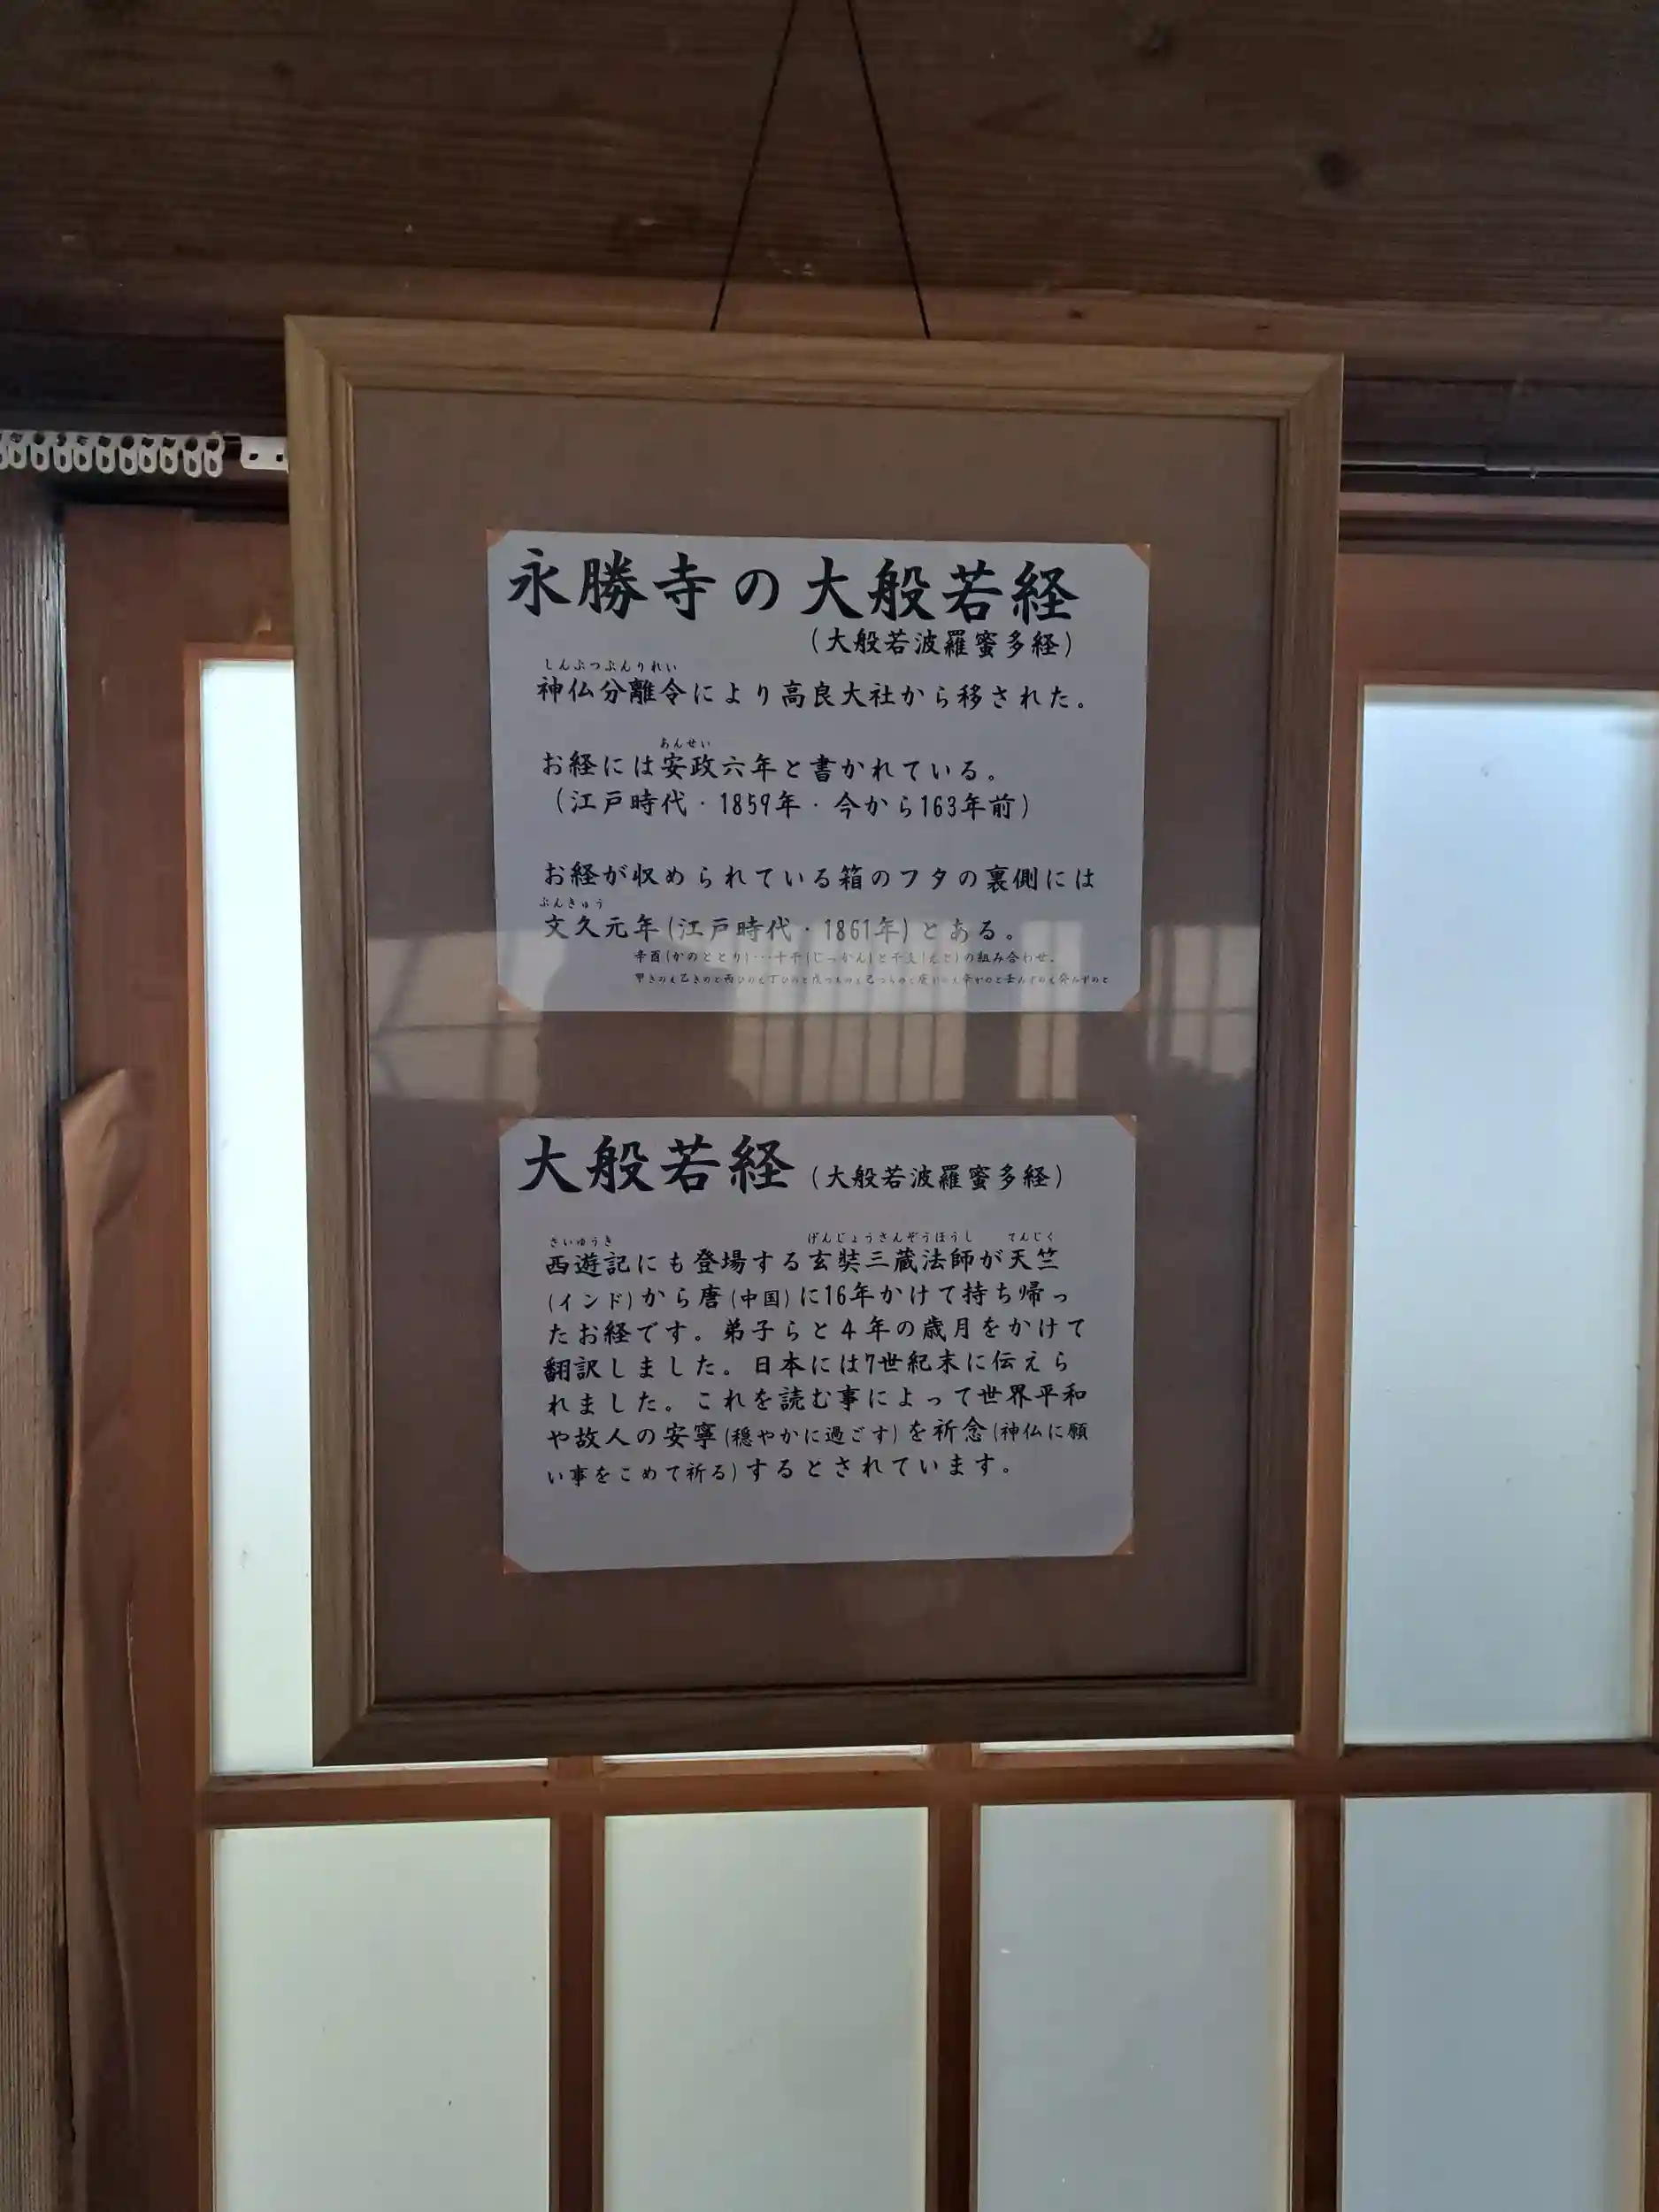 永勝寺の大般若経
(大般若波羅蜜多経)
しんぶつぶんりれい
神仏分離令により高良大社から移された。
あんせい
お経には安政六年と書かれている。
(江戸時代・1859年・今から163年前)
お経が収められている箱のフタの裏側には
ぶんきゅう
文久元年(江戸時代・1861年)とある。
辛酉(かのととり)…十干(じっかん)と干支(えと)の組み合わせ。
甲きのえ乙きのと丙ひのえ丁ひのと戊つちのえ己つちのと庚かのえ辛かのと壬みずのえ癸みずのと
大般若経(大般若波羅蜜多経)
さいゆうき げんじょうさんぞうほうし てんじく
西遊記にも登場する玄奘三蔵法師が天竺
(インド)から唐(中国)に16年かけて持ち帰っ
たお経です。弟子らと4年の歳月をかけて
翻訳しました。日本には7世紀末に伝えら
れました。これを読む事によって世界平和
や故人の安寧(穏やかに過ごす)を祈念(神仏に願
い事をこめて祈る)するとされています。